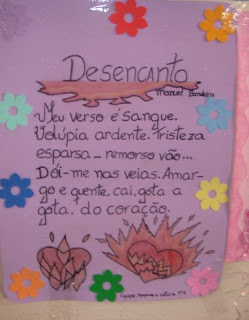 Desencanto
Manuel Bandeira
Meu verso é sangue.
Volúpia ardente. Tristeza
esparsa... remorso vão...
Dói-me nas veias. Amar-
go e quente, cai, gota a
gota, do coração.